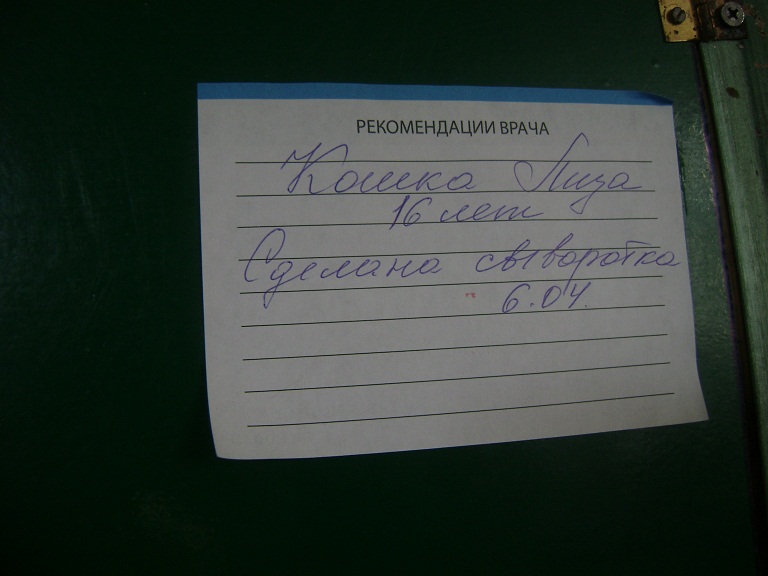 РЕКОМЕНДАЦИИ ВРАЧА
Кошка Лиза
16 лет
Сделана сыворотка
6.04.